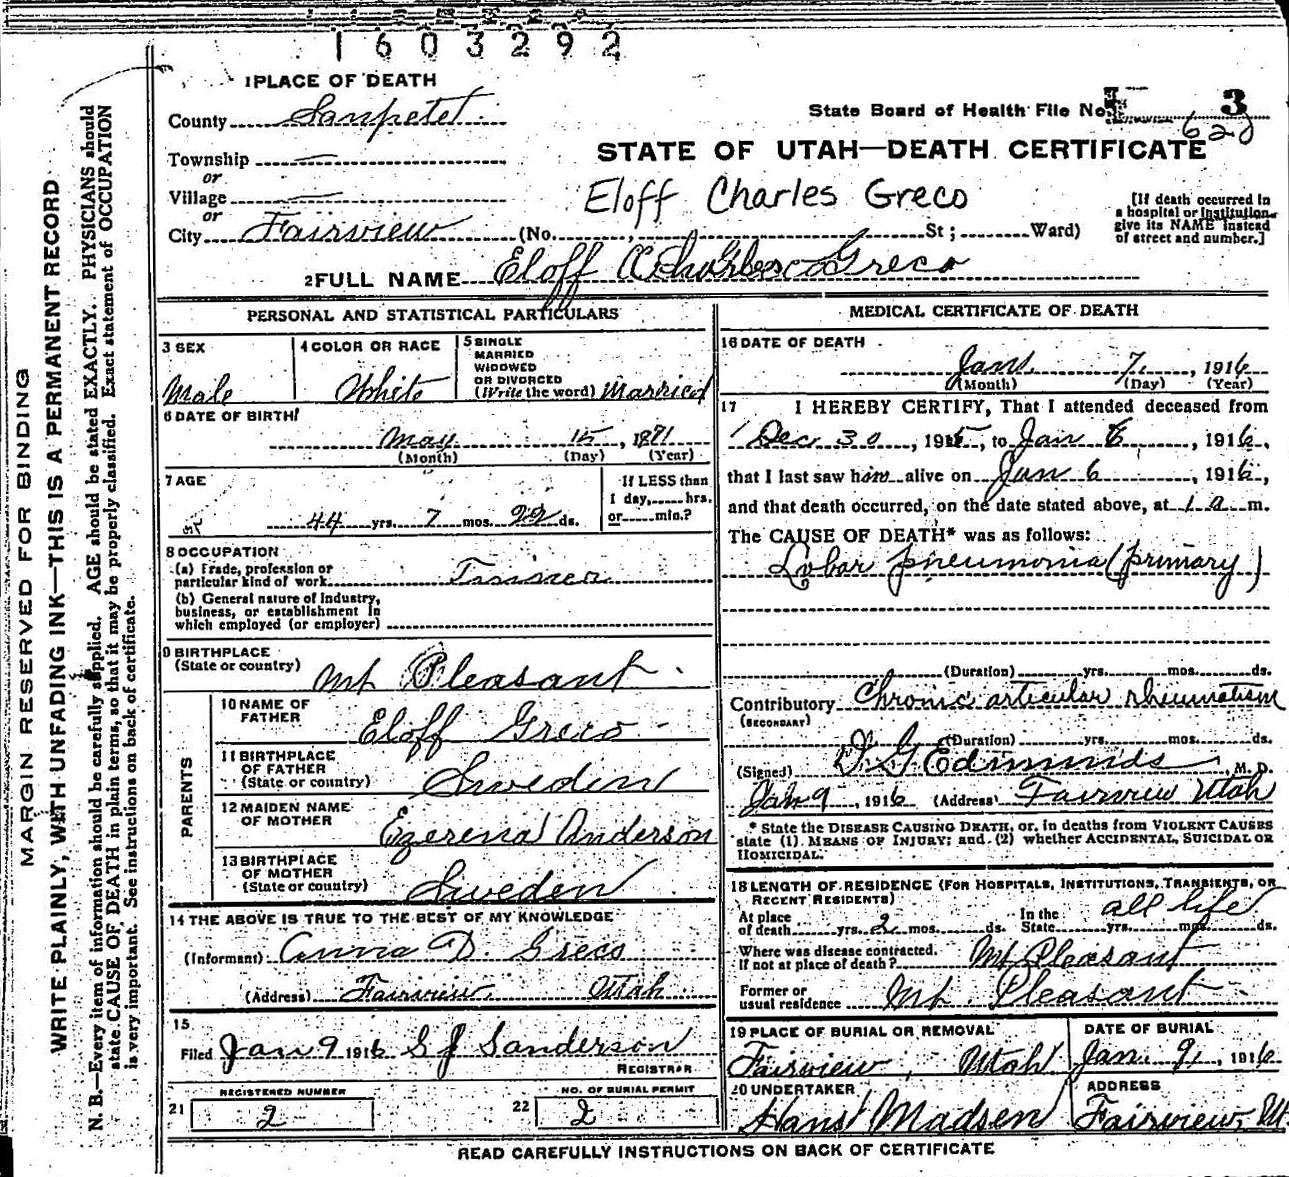 1603292
1 PLACE OF DEATH
County Sanpete
State Board of Health File No. 3
Township —
or
Village —
or
City Fairview (No. St; Ward)
STATE OF UTAH—DEATH CERTIFICATE
Eloff Charles Greco
[If death occurred in
a hospital or institution
give its NAME instead
of street and number.]
2 FULL NAME Eloff Greco
PERSONAL AND STATISTICAL PARTICULARS
3 SEX
Male
4 COLOR OR RACE
White
5 SINGLE
MARRIED
WIDOWED
OR DIVORCED
(Write the word) Married
6 DATE OF BIRTH
May 15, 1871
(Month) (Day) (Year)
7 AGE
44 yrs. 7 mos. 22 ds.
If LESS than
1 day, hrs.
or min.?
8 OCCUPATION
(a) Trade, profession or
particular kind of work Tinner
(b) General nature of Industry,
business, or establishment in
which employed (or employer)
9 BIRTHPLACE
(State or country) Mt Pleasant
PARENTS
10 NAME OF
FATHER Eloff Greco
11 BIRTHPLACE
OF FATHER
(State or country) Sweden
12 MAIDEN NAME
OF MOTHER Ezerena Anderson
13 BIRTHPLACE
OF MOTHER
(State or country) Sweden
14 THE ABOVE IS TRUE TO THE BEST OF MY KNOWLEDGE
(Informant) Anna D. Greco
(Address) Fairview Utah
15
Filed Jan 9 1916 S J Sanderson
REGISTRAR
REGISTERED NUMBER
21 2
NO. OF BURIAL PERMIT
22 2
MEDICAL CERTIFICATE OF DEATH
16 DATE OF DEATH
Jan. 7, 1916
(Month) (Day) (Year)
17 I HEREBY CERTIFY, That I attended deceased from
Dec 30, 1915, to Jan 6, 1916,
that I last saw him alive on Jan 6, 1916,
and that death occurred, on the date stated above, at 1 a m.
The CAUSE OF DEATH* was as follows:
Lobar pneumonia (primary)
(Duration) yrs. mos. ds.
Contributory Chronic articular rheumatism
(SECONDARY)
(Duration) yrs. mos. ds.
(Signed) Edmunds, M. D.
Jan 9, 1916 (Address) Fairview Utah
* State the DISEASE CAUSING DEATH, or, in deaths from VIOLENT CAUSES
state (1) MEANS OF INJURY; and (2) whether ACCIDENTAL, SUICIDAL OR
HOMICIDAL.
18 LENGTH OF RESIDENCE (FOR HOSPITALS, INSTITUTIONS, TRANSIENTS, OR
RECENT RESIDENTS)
At place
of death yrs. 2 mos. ds. In the
State all life yrs. mos. ds.
Where was disease contracted,
if not at place of death? Mt Pleasant
Former or
usual residence Mt. Pleasant
19 PLACE OF BURIAL OR REMOVAL
Fairview, Utah
DATE OF BURIAL
Jan. 9, 1916
20 UNDERTAKER
Hans Madsen
ADDRESS
Fairview, Ut.
READ CAREFULLY INSTRUCTIONS ON BACK OF CERTIFICATE
MARGIN RESERVED FOR BINDING
WRITE PLAINLY, WITH UNFADING INK—THIS IS A PERMANENT RECORD
N. B.—Every item of information should be carefully supplied. AGE should be stated EXACTLY. PHYSICIANS should
state CAUSE OF DEATH in plain terms, so that it may be properly classified. Exact statement of OCCUPATION
is very important. See instructions on back of certificate.